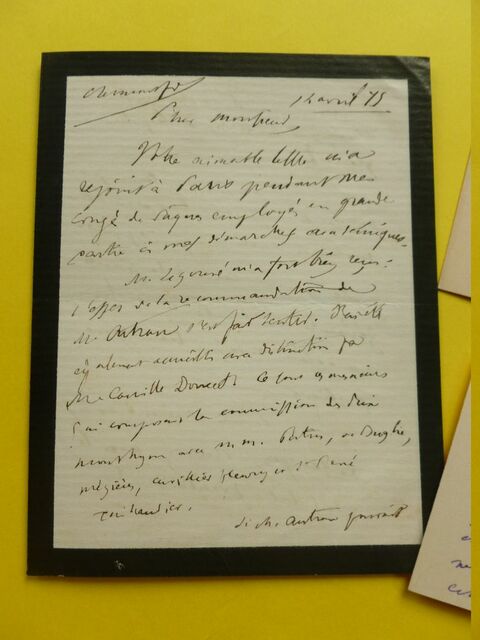 12 avril 75
Cher monsieur
Votre aimable lettre m'a
rejoint à Paris pendant mes
congé de Pâques employés en grande
partie à mes démarches académiques.
M. Legouvé m'a fort bien reçu.
L'effet de la recommandation de
M. Autran s'est fait sentir. J'ai été
également accueilli avec distinction par
M. Camille Doucet. Ce sont ces messieurs
qui composent la commission des prix
avec MM. Patin, de Broglie,
Mézières, Cuvillier Fleury et St René
Taillandier.
Si M. Autran pouvait